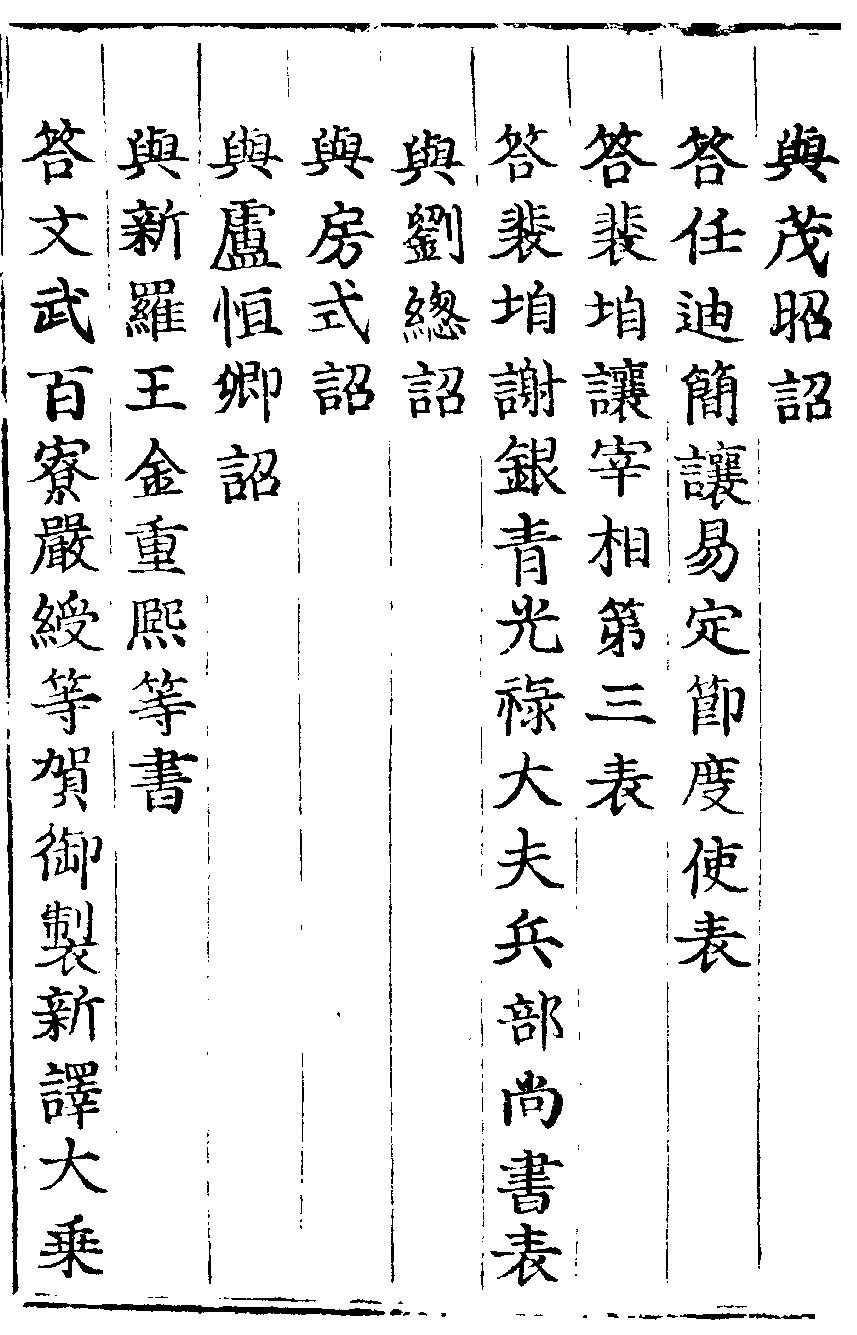 與茂昭詔
答任迪簡讓易定節度使表
答裴垍讓宰相第三表
答裴垍謝銀青光祿大夫兵部尚書表
與劉總詔
與房式詔
與盧恒卿詔
與新羅王金重熙等書
答文武百寮嚴綬等賀御製新譯大乗